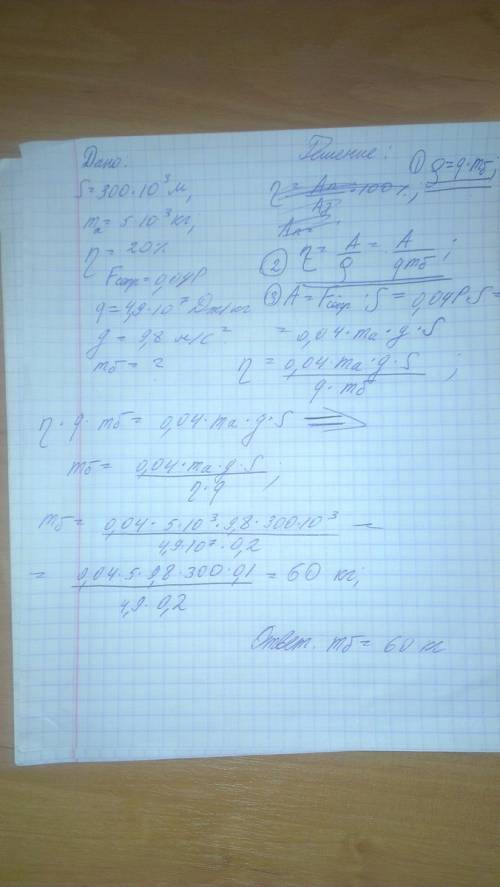 Дано:
S = 300·10³ м,
mа = 5·10³ кг,
η = 20%
Fсопр = 0,04P
q = 4,9·10⁷ Дж/кг
g = 9,8 м/с²
mб = ?
Решение:
① Q = q·mб;
η = Aп = 100%;
Aп =
② η = A/Q = A/qmб;
③ A = Fсопр·S = 0,04P·S =
= 0,04·mа·g·S
η = 0,04·mа·g·S / q·mб;
η·q·mб = 0,04·mа·g·S ⟹
mб = 0,04·mа·g·S / η·q;
mб = 0,04·5·10³·9,8·300·10³ / 4,9·10⁷·0,2 =
= 0,04·5·9,8·300·0,1 / 4,9·0,2 = 60 кг;
Ответ. mб = 60 кг